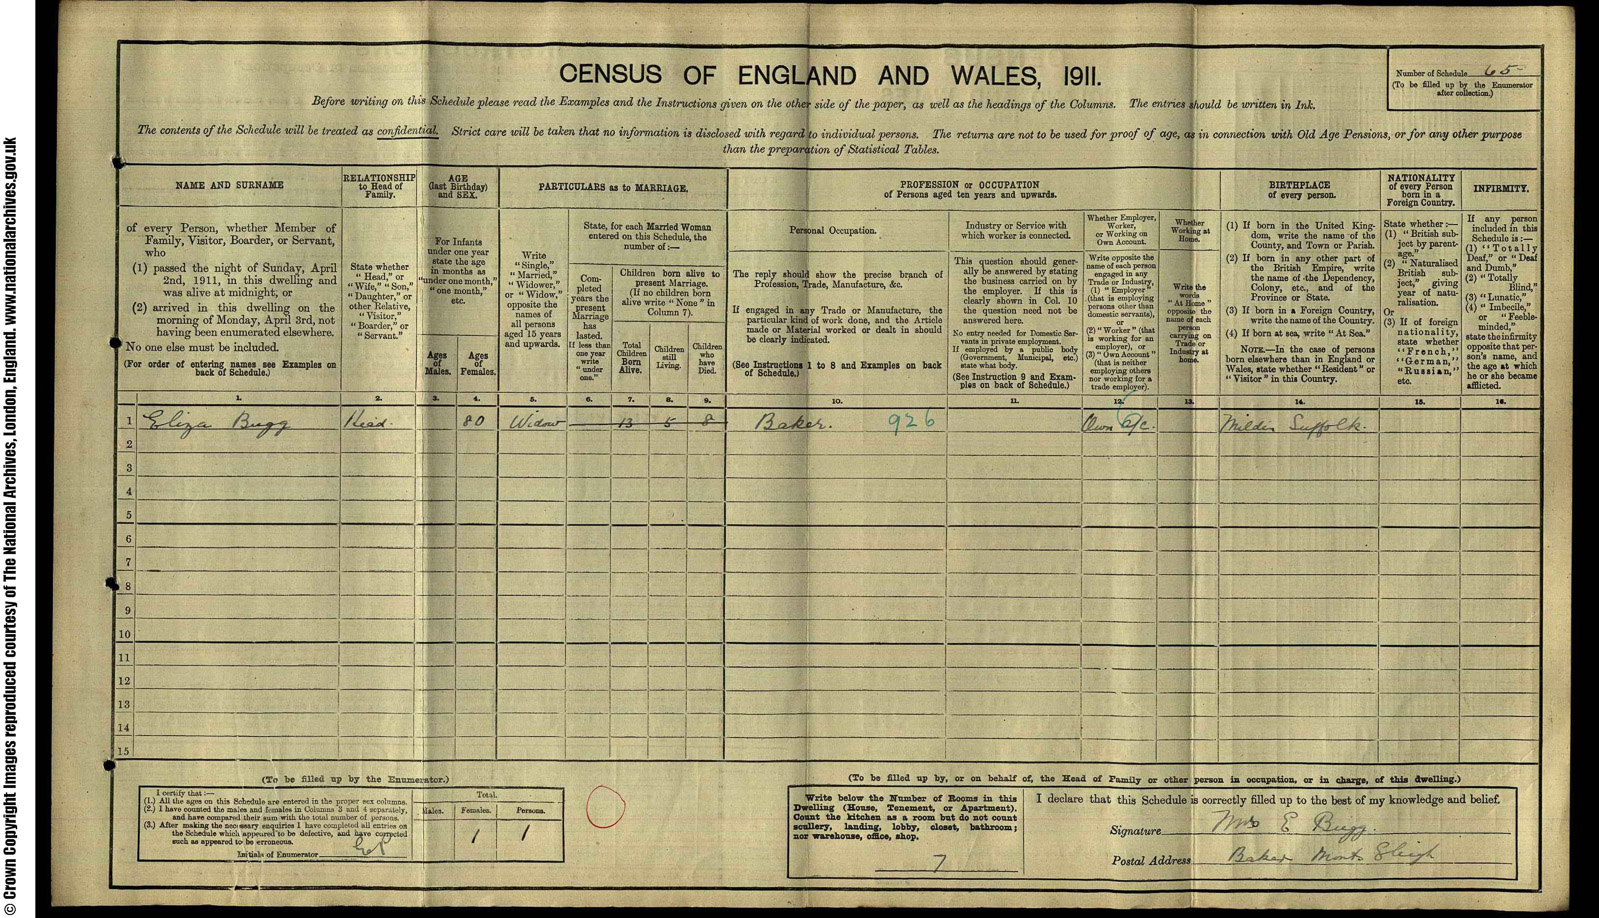 CENSUS OF ENGLAND AND WALES, 1911.
Number of Schedule 65
(To be filled up by the Enumerator
after collection.)
Before writing on this Schedule please read the Examples and the Instructions given on the other side of the paper, as well as the headings of the Columns. The entries should be written in Ink.
The contents of the Schedule will be treated as confidential. Strict care will be taken that no information is disclosed with regard to individual persons. The returns are not to be used for proof of age, as in connection with Old Age Pensions, or for any other purpose
than the preparation of Statistical Tables.
NAME AND SURNAME
of every Person, whether Member of
Family, Visitor, Boarder, or Servant,
who
(1) passed the night of Sunday, April
2nd, 1911, in this dwelling and
was alive at midnight; or
(2) arrived in this dwelling on the
morning of Monday, April 3rd, not
having been enumerated elsewhere.
No one else must be included.
(For order of entering names see Examples on
back of Schedule.)
RELATIONSHIP
to Head of
Family.
State whether
"Head," or
"Wife," "Son,"
"Daughter," or
other Relative,
"Visitor,"
"Boarder," or
"Servant."
AGE
(last Birthday)
and SEX.
For Infants
under one year
state the age
in months as
"under one month,"
"one month,"
etc.
Ages
of
Males.
Ages
of
Females.
PARTICULARS as to MARRIAGE.
Write
"Single,"
"Married,"
"Widower,"
or "Widow,"
opposite the
names of
all persons
aged 15 years
and upwards.
State, for each Married Woman
entered on this Schedule, the
number of:—
Com-
pleted
years the
present
Marriage
has
lasted.
If less than
one year
write
"under
one."
Children born alive to
present Marriage.
(If no children born
alive write "None" in
Column 7).
Total
Children
Born
Alive.
Children
still
Living.
Children
who
have
Died.
PROFESSION or OCCUPATION
of Persons aged ten years and upwards.
Personal Occupation.
The reply should show the precise branch of
Profession, Trade, Manufacture, &c.
If engaged in any Trade or Manufacture, the
particular kind of work done, and the Article
made or Material worked or dealt in should
be clearly indicated.
(See Instructions 1 to 8 and Examples on back
of Schedule.)
Industry or Service with
which worker is connected.
This question should gener-
ally be answered by stating
the business carried on by
the employer. If this is
clearly shown in Col. 10
the question need not be
answered here.
No entry needed for Domestic Ser-
vants in private employment.
If employed by a public body
(Government, Municipal, etc.)
state what body.
(See Instruction 9 and Exam-
ples on back of Schedule.)
Whether Employer,
Worker,
or Working on
Own Account.
Write opposite the
name of each person
engaged in any
Trade or Industry,
(1) "Employer"
(that is employing
persons other than
domestic servants),
or
(2) "Worker" (that
is working for an
employer), or
(3) "Own Account"
(that is neither
employing others
nor working for a
trade employer).
Whether
Working at
Home.
Write the
words
"At Home"
opposite the
name of each
person
carrying on
Trade or
Industry at
home.
BIRTHPLACE
of every person.
(1) If born in the United King-
dom, write the name of the
County, and Town or Parish.
(2) If born in any other part of
the British Empire, write
the name of the Dependency,
Colony, etc., and of the
Province or State.
(3) If born in a Foreign Country,
write the name of the Country.
(4) If born at sea, write "At Sea."
NOTE.—In the case of persons
born elsewhere than in England or
Wales, state whether "Resident" or
"Visitor" in this Country.
NATIONALITY
of every Person
born in a
Foreign Country.
State whether :—
(1) "British sub-
ject by parent-
age."
(2) "Naturalised
British sub-
ject," giving
year of natu-
ralisation.
Or
(3) If of foreign
nationality,
state whether
"French,"
"German,"
"Russian,"
etc.
INFIRMITY.
If any person
included in this
Schedule is:—
(1) "Totally
Deaf," or "Deaf
and Dumb,"
(2) "Totally
Blind,"
(3) "Lunatic,"
(4) "Imbecile,"
or "Feeble-
minded,"
state the infirmity
opposite that per-
son's name, and
the age at which
he or she became
afflicted.
1. 2. 3. 4. 5. 6. 7. 8. 9. 10. 11. 12. 13. 14. 15. 16.
1 Eliza Bugg Head. 80 Widow 13 5 8 Baker. 926 Own a/c. Milden Suffolk.
2
3
4
5
6
7
8
9
10
11
12
13
14
15
(To be filled up by the Enumerator.)
I certify that:—
(1.) All the ages on this Schedule are entered in the proper sex columns.
(2.) I have counted the males and females in Columns 3 and 4 separately,
and have compared their sum with the total number of persons.
(3.) After making the necessary enquiries I have completed all entries on
the Schedule which appeared to be defective, and have corrected
such as appeared to be erroneous.
Initials of Enumerator
Total.
Males. Females. Persons.
1 1
(To be filled up by, or on behalf of, the Head of Family or other person in occupation, or in charge, of this dwelling.)
Write below the Number of Rooms in this
Dwelling (House, Tenement, or Apartment).
Count the kitchen as a room but do not count
scullery, landing, lobby, closet, bathroom;
nor warehouse, office, shop.
7
I declare that this Schedule is correctly filled up to the best of my knowledge and belief.
Signature Mrs E Bugg.
Postal Address Baker Monks Eleigh
© Crown Copyright Images reproduced courtesy of The National Archives, London, England. www.nationalarchives.gov.uk